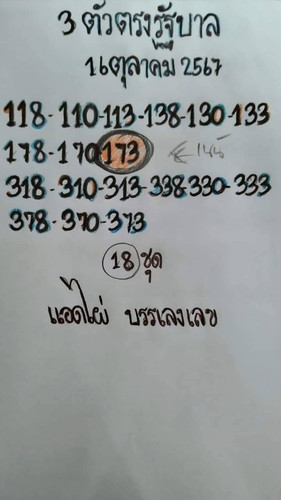 3 ตัวตรงรัฐบาล
16ตุลาคม 2567
118-110-113-138-130-133
178-170 173 เน้น
318-310-313-338 330-333
378-370-373
18 ชุด
แอดไผ่ บรรเลงเลข